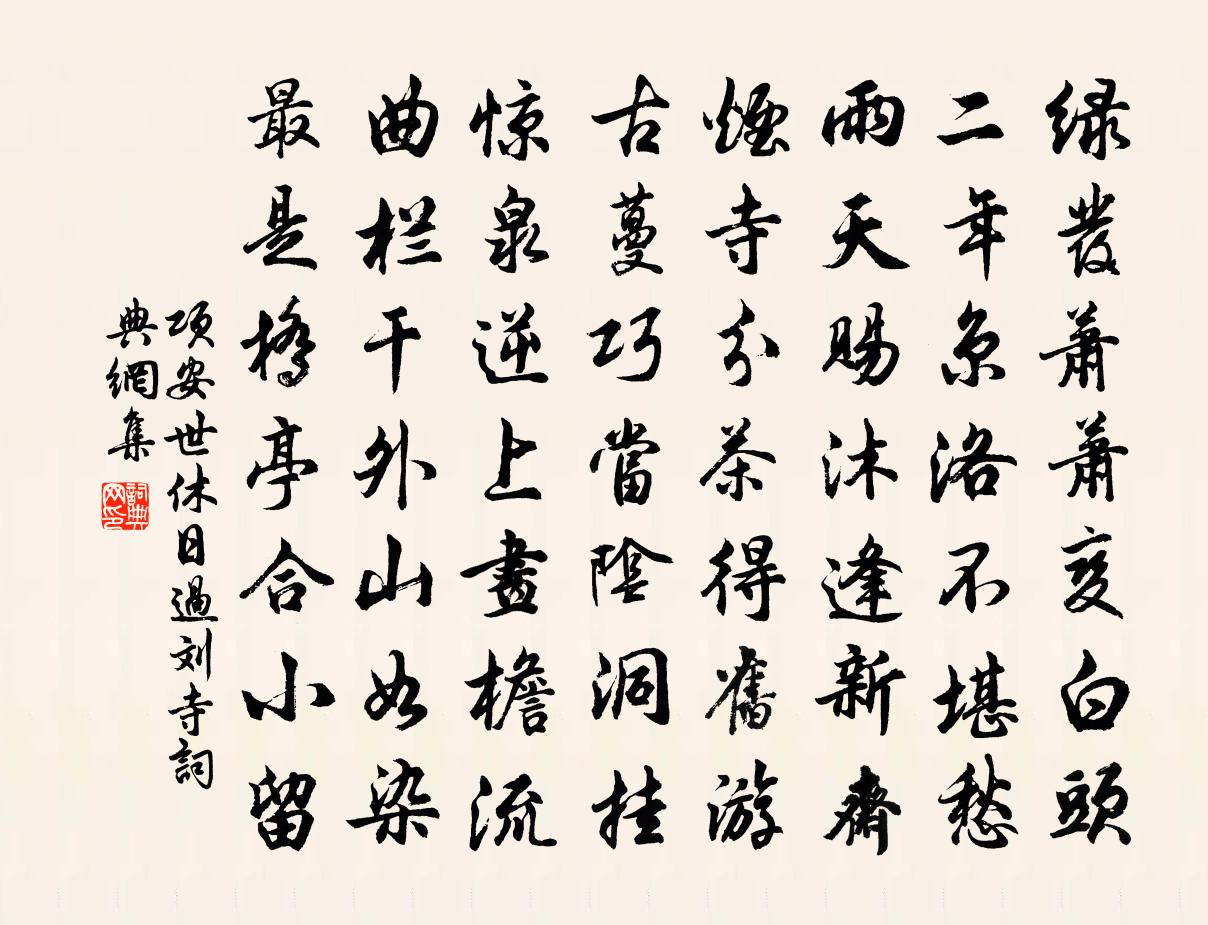 绿发萧萧变白頭
二年京洛不堪愁
雨天賜沐逢新齋
煙寺分茶得舊游
古蔓巧當陰洞挂
惊泉逆上畫檐流
曲栏干外山如染
最是橋亭合小留
項安世休日過刘寺詞
典網集
詞典
网印